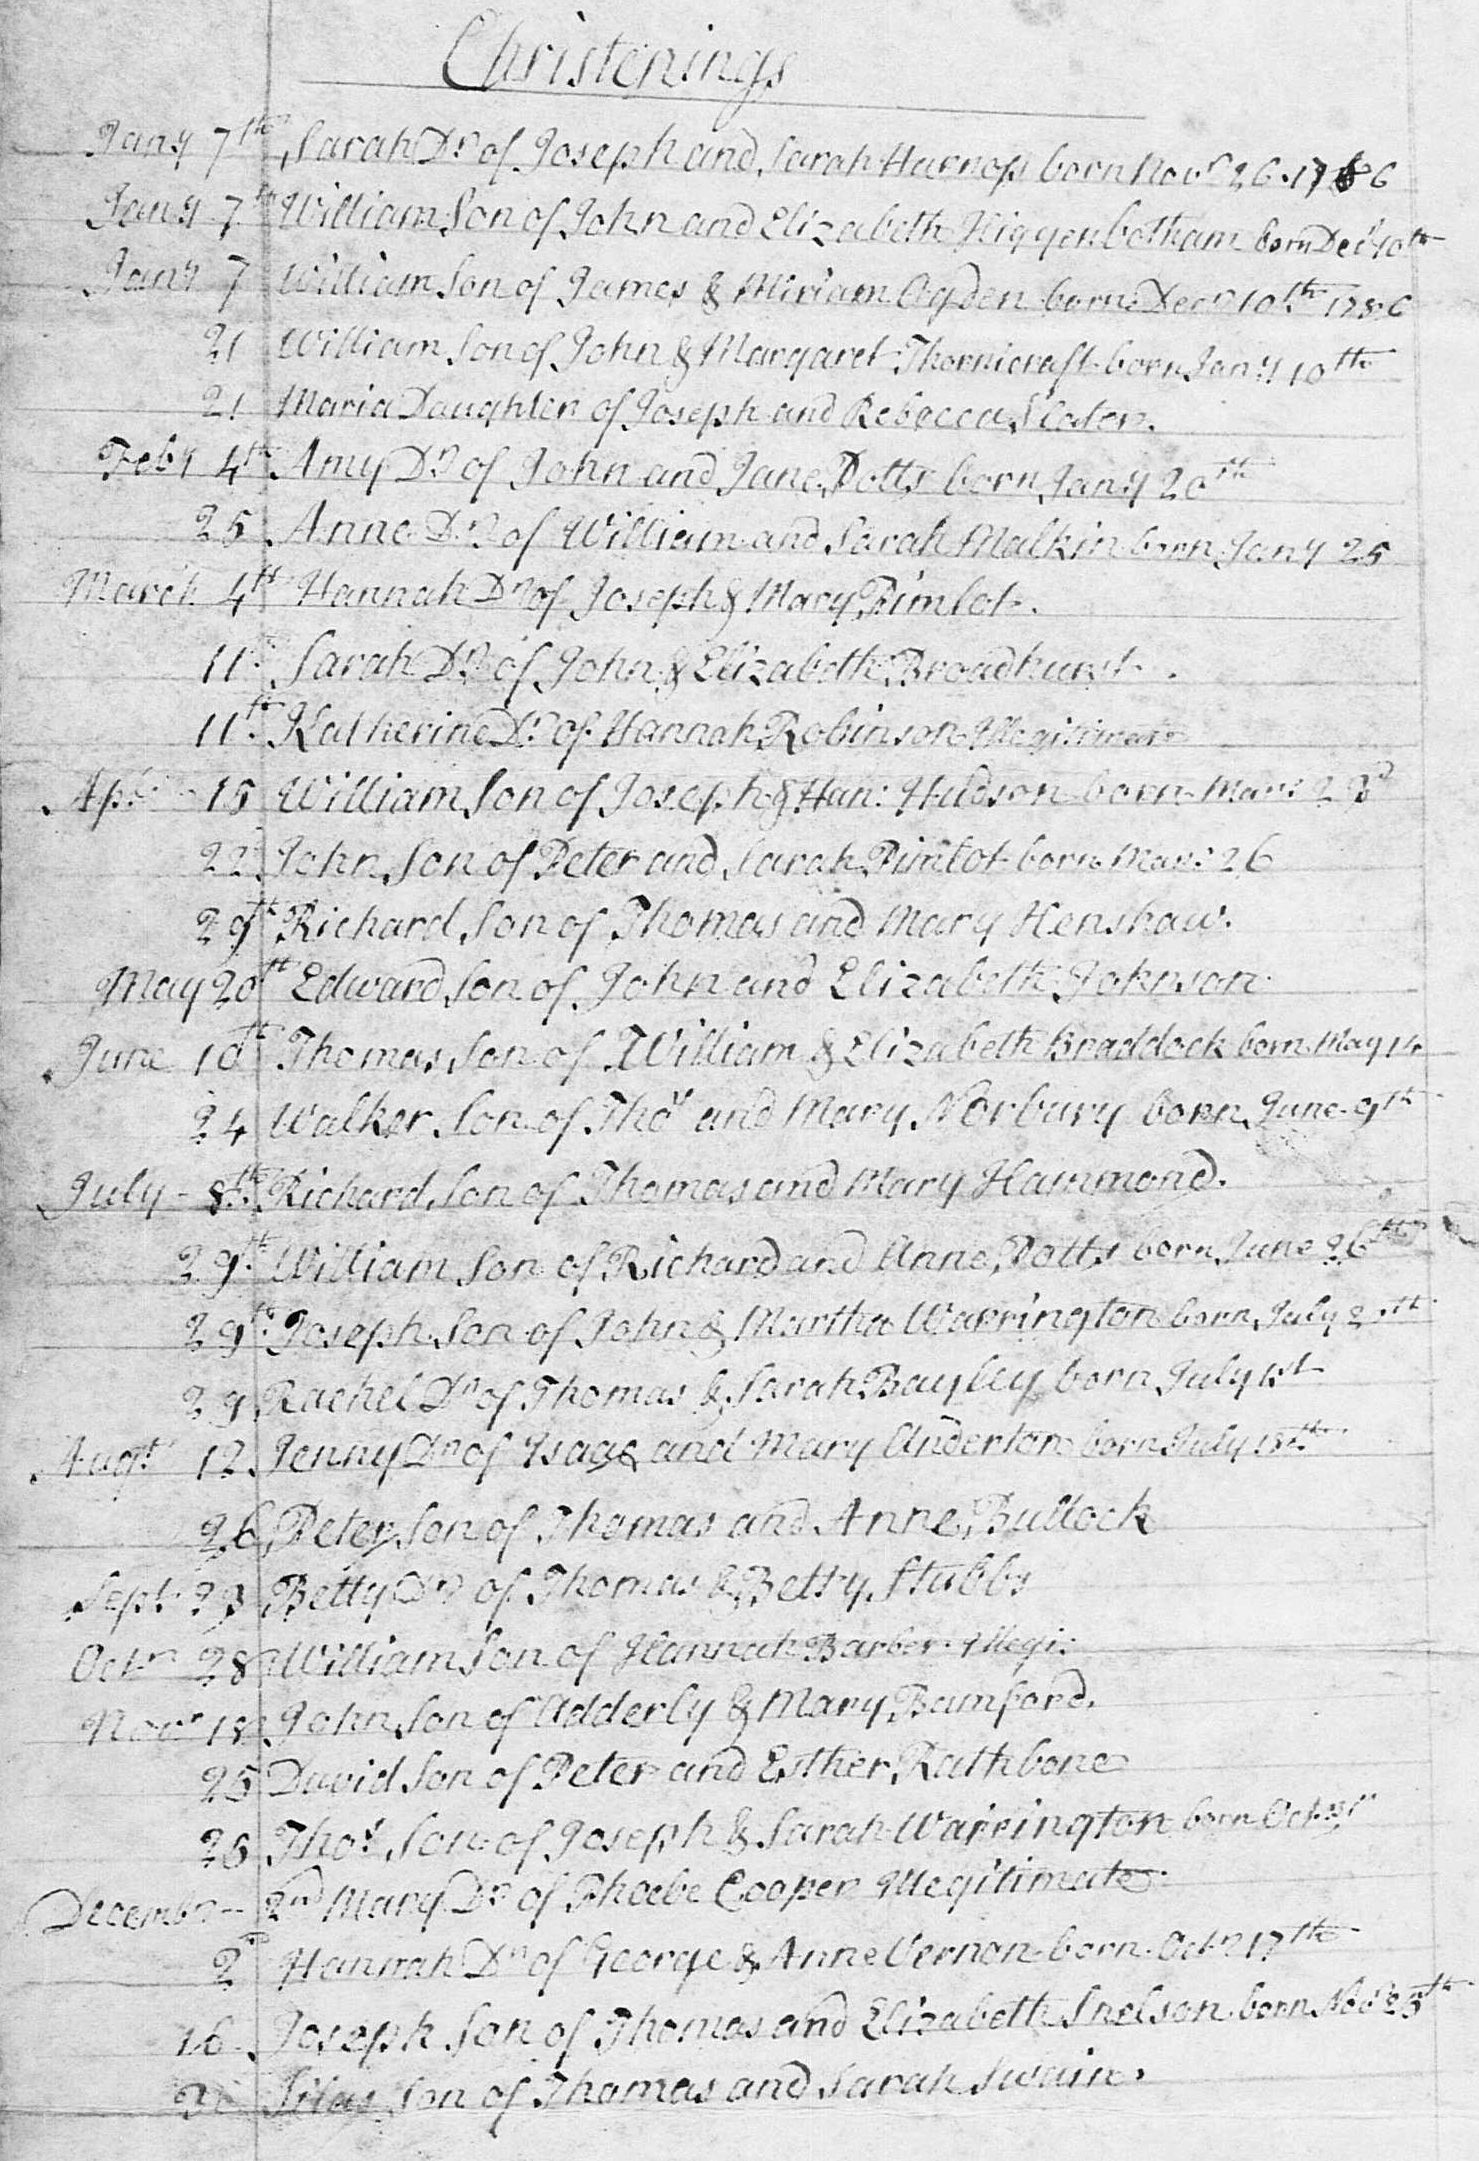 Christenings
Jany 7th Sarah Dr of Joseph and Sarah Harrop born Novr 26. 1786
Jany 7th William Son of John and Elizabeth Higgenbotham born Decr 10th
Jany 7 William Son of James & Miriam Ogden born Decr 10th 1786
21 William Son of John & Margaret Thornicraft born Jany 10th
21 Maria Daughter of Joseph and Rebecca Slater.
Feby 4th Amy Dr of John and Jane Potts born Jany 20th
25 Anne Dr of William and Sarah Malkin born Jany 25
March 4th Hannah Dr of Joseph & Mary Pimlot.
11th Sarah Dr of John & Elizabeth Broadhurst.
11th Katherine Dr of Hannah Robinson Illegitimate
Apl 15 William Son of Joseph & Han: Hudson born Mar: 23d
22 John Son of Peter and Sarah Pimlot born Mar: 26
29th Richard Son of Thomas and Mary Henshaw.
May 20th Edward Son of John and Elizabeth Johnson.
June 10th Thomas Son of William & Elizabeth Braddock born May 14
24 Walker Son of Thos and Mary Norbury born June 9th
July - 8th Richard Son of Thomas and Mary Hammond.
29th William Son of Richard and Anne Potts born June 26th
29th Joseph Son of John & Martha Warrington born July
29 Rachel Dr of Thomas & Sarah Bayley born July 1st
Augt 12 Jenny Dr of Isaac and Mary Anderton born July 18th
26 Peter Son of Thomas and Anne Bullock
Sept 23 Betty Dr of Thomas & Betty Stubbs
Octr 28 William Son of Hannah Barber Illegi:
Novr 18 John Son of Adderly & Mary Bamford.
25 David Son of Peter and Esther Rathbone
25 Thos Son of Joseph & Sarah Warrington born Oct 31st
Decembr - 2nd Mary Dr of Phoebe Cooper Illegitimate
2d Hannah Dr of George & Anne Vernon born Octr 17th
16 Joseph Son of Thomas and Elizabeth Snelson born Novr 25th
30 Silas Son of Thomas and Sarah Swain.